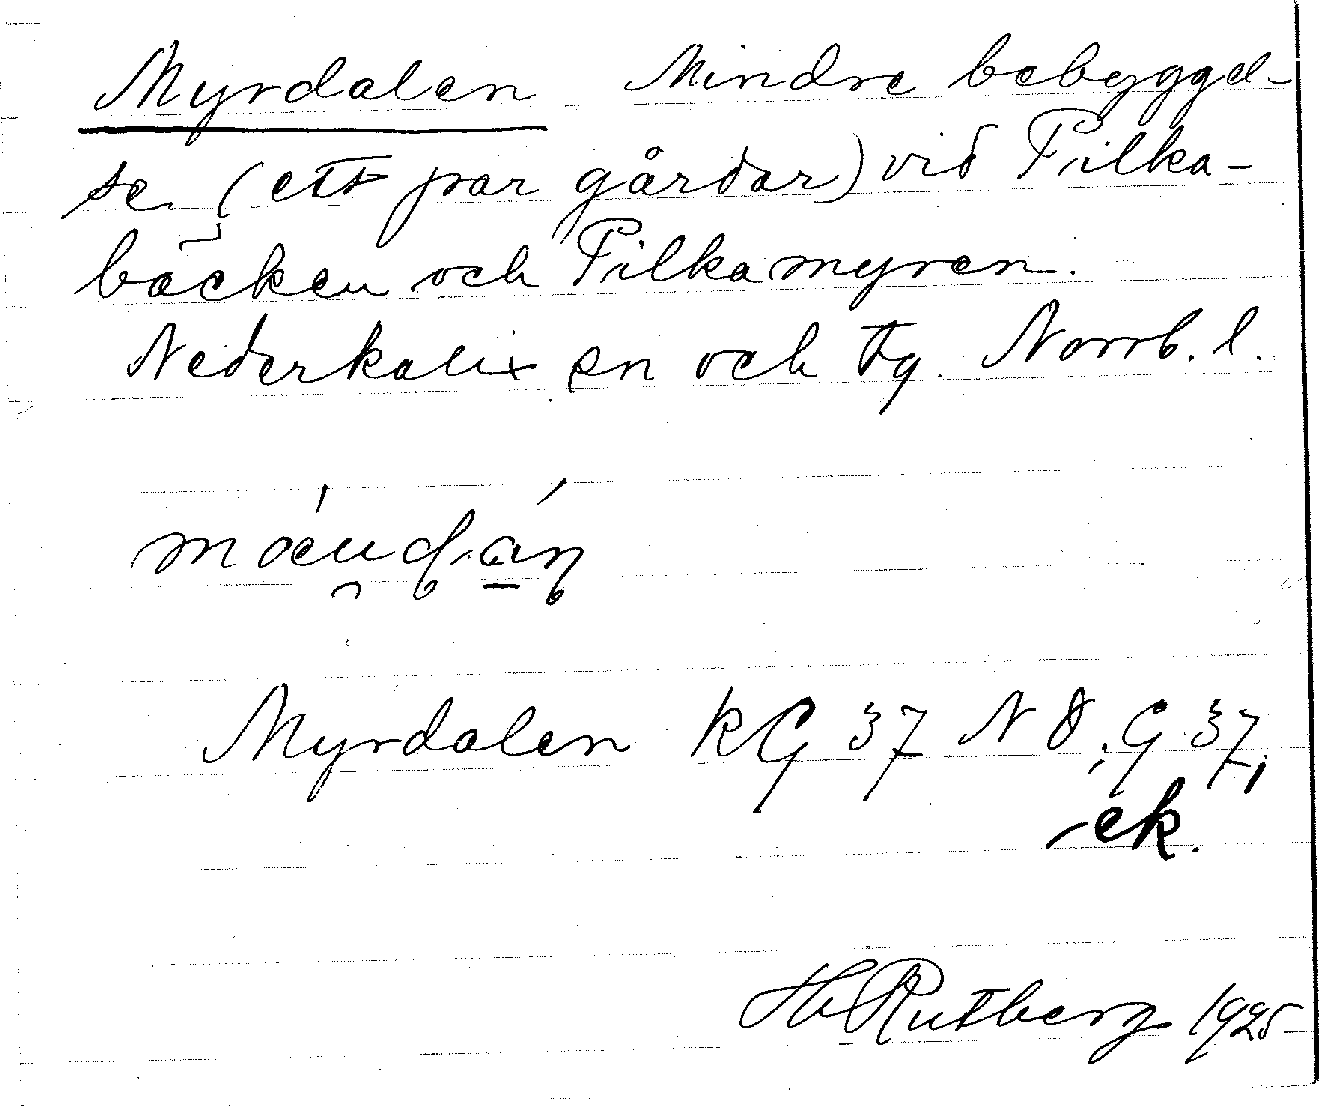 Myrdalen Mindre bebyggel-
se (ett par gårdar) vid Filka-
bäcken och Filkamyren.
Nederkalix sn och tg. Norrb. l.
Myrdalen kG 37 N8, G 37,
ek.
Rutberg 1925